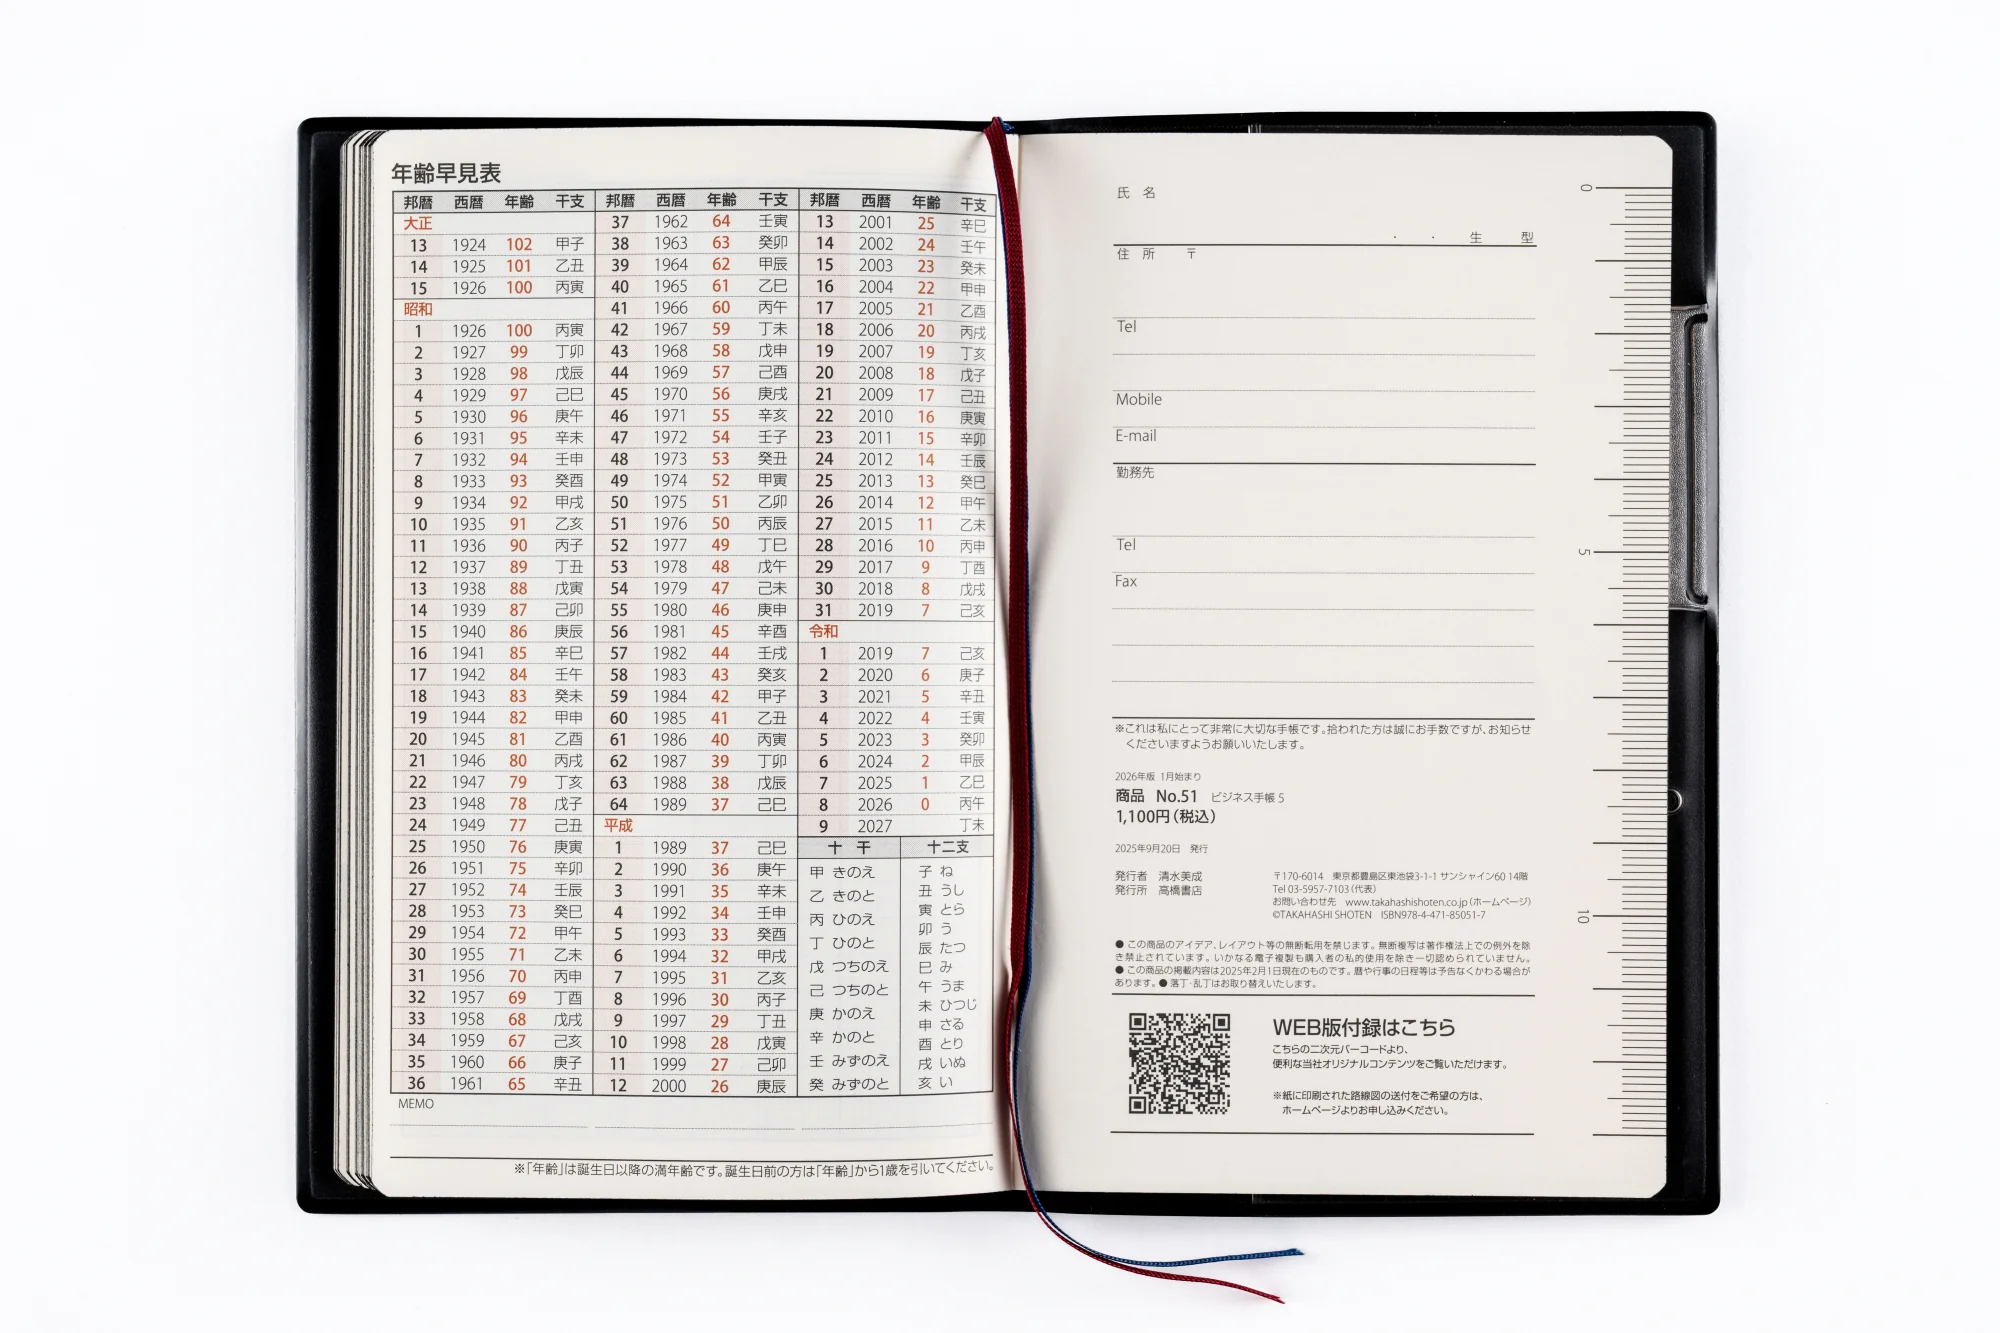 年齢早見表
邦暦 西暦 年齢 干支
大正
13 1924 102 甲子
14 1925 101 乙丑
15 1926 100 丙寅
昭和
1 1926 100 丙寅
2 1927 99 丁卯
3 1928 98 戊辰
4 1929 97 己巳
5 1930 96 庚午
6 1931 95 辛未
7 1932 94 壬申
8 1933 93 癸酉
9 1934 92 甲戌
10 1935 91 乙亥
11 1936 90 丙子
12 1937 89 丁丑
13 1938 88 戊寅
14 1939 87 己卯
15 1940 86 庚辰
16 1941 85 辛巳
17 1942 84 壬午
18 1943 83 癸未
19 1944 82 甲申
20 1945 81 乙酉
21 1946 80 丙戌
22 1947 79 丁亥
23 1948 78 戊子
24 1949 77 己丑
25 1950 76 庚寅
26 1951 75 辛卯
27 1952 74 壬辰
28 1953 73 癸巳
29 1954 72 甲午
30 1955 71 乙未
31 1956 70 丙申
32 1957 69 丁酉
33 1958 68 戊戌
34 1959 67 己亥
35 1960 66 庚子
36 1961 65 辛丑
邦暦 西暦 年齢 干支
37 1962 64 壬寅
38 1963 63 癸卯
39 1964 62 甲辰
40 1965 61 乙巳
41 1966 60 丙午
42 1967 59 丁未
43 1968 58 戊申
44 1969 57 己酉
45 1970 56 庚戌
46 1971 55 辛亥
47 1972 54 壬子
48 1973 53 癸丑
49 1974 52 甲寅
50 1975 51 乙卯
51 1976 50 丙辰
52 1977 49 丁巳
53 1978 48 戊午
54 1979 47 己未
55 1980 46 庚申
56 1981 45 辛酉
57 1982 44 壬戌
58 1983 43 癸亥
59 1984 42 甲子
60 1985 41 乙丑
61 1986 40 丙寅
62 1987 39 丁卯
63 1988 38 戊辰
64 1989 37 己巳
平成
1 1989 37 己巳
2 1990 36 庚午
3 1991 35 辛未
4 1992 34 壬申
5 1993 33 癸酉
6 1994 32 甲戌
7 1995 31 乙亥
8 1996 30 丙子
9 1997 29 丁丑
10 1998 28 戊寅
11 1999 27 己卯
12 2000 26 庚辰
邦暦 西暦 年齢 干支
13 2001 25 辛巳
14 2002 24 壬午
15 2003 23 癸未
16 2004 22 甲申
17 2005 21 乙酉
18 2006 20 丙戌
19 2007 19 丁亥
20 2008 18 戊子
21 2009 17 己丑
22 2010 16 庚寅
23 2011 15 辛卯
24 2012 14 壬辰
25 2013 13 癸巳
26 2014 12 甲午
27 2015 11 乙未
28 2016 10 丙申
29 2017 9 丁酉
30 2018 8 戊戌
31 2019 7 己亥
令和
1 2019 7 己亥
2 2020 6 庚子
3 2021 5 辛丑
4 2022 4 壬寅
5 2023 3 癸卯
6 2024 2 甲辰
7 2025 1 乙巳
8 2026 0 丙午
9 2027 丁未
十 干
甲 きのえ
乙 きのと
丙 ひのえ
丁 ひのと
戊 つちのえ
己 つちのと
庚 かのえ
辛 かのと
壬 みずのえ
癸 みずのと
十二支
子 ね
丑 うし
寅 とら
卯 う
辰 たつ
巳 み
午 うま
未 ひつじ
申 さる
酉 とり
戌 いぬ
亥 い
MEMO
※「年齢」は誕生日以降の満年齢です。誕生日前の方は「年齢」から1歳を引いてください。
氏 名
・ ・ 生 型
住 所 〒
Tel
Mobile
E-mail
勤務先
Tel
Fax
※これは私にとって非常に大切な手帳です。拾われた方は誠にお手数ですが、お知らせ
くださいますようお願いいたします。
2026年版 1月始まり
商品 No.51 ビジネス手帳 5
1,100円(税込)
2025年9月20日 発行
発行者 清水美成
発行所 高橋書店
〒170-6014 東京都豊島区東池袋3-1-1 サンシャイン60 14階
Tel 03-5957-7103(代表)
お問い合わせ先 www.takahashishoten.co.jp(ホームページ)
©TAKAHASHI SHOTEN ISBN978-4-471-85051-7
● この商品のアイデア、レイアウト等の無断転用を禁じます。無断複写は著作権法上での例外を除
き禁止されています。いかなる電子複製も購入者の私的使用を除き一切認められていません。
● この商品の掲載内容は2025年2月1日現在のものです。暦や行事の日程等は予告なくかわる場合が
あります。● 落丁・乱丁はお取り替えいたします。
WEB版付録はこちら
こちらの二次元バーコードより、
便利な当社オリジナルコンテンツをご覧いただけます。
※紙に印刷された路線図の送付をご希望の方は、
ホームページよりお申し込みください。
0
5
10